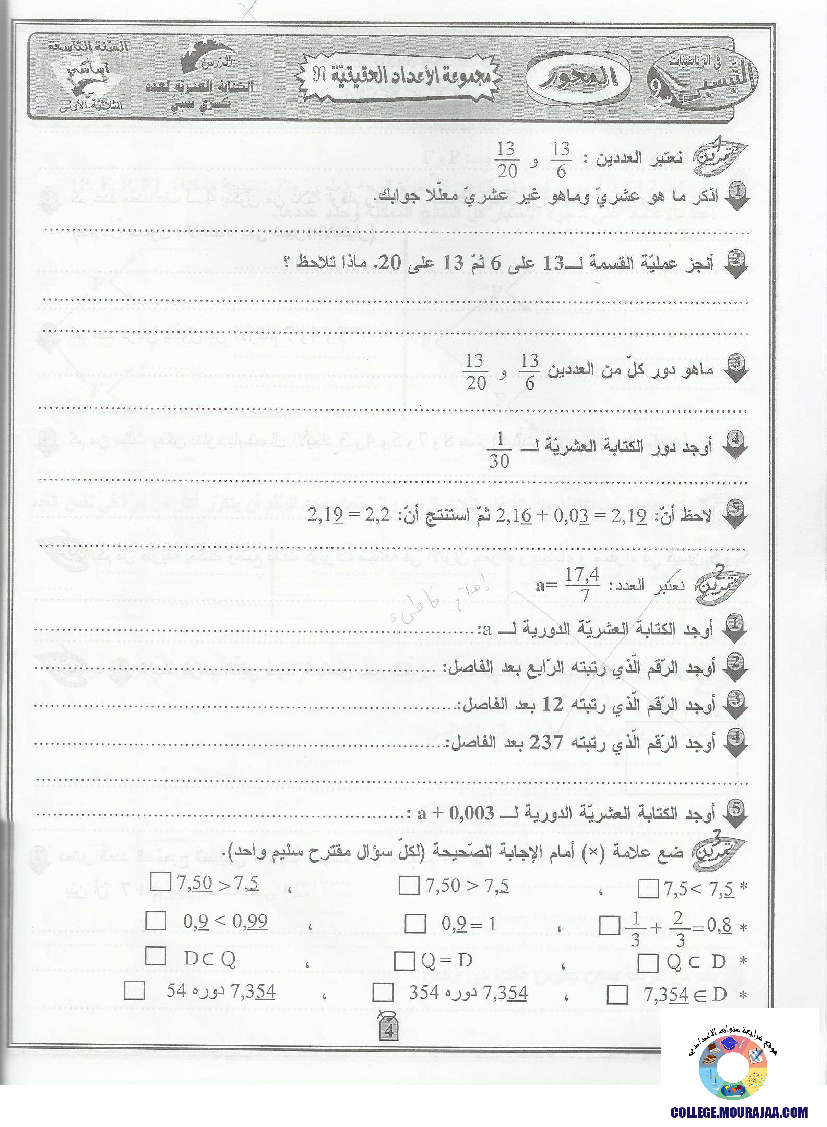 السنة التاسعة
أساسي
الثلاثية الأولى
الدرس
الكتابة العشرية لعدد
كسري نسبي
مجموعة الأعداد الحقيقيّة ℜ
المحور
في الرياضيات
التيسير
9
تمرين 1 نعتبر العددين : 13/6 و 13/20
1 اذكر ما هو عشريّ وماهو غير عشريّ معلّلا جوابك.
2 أنجز عمليّة القسمة لـ13 على 6 ثمّ 13 على 20. ماذا تلاحظ ؟
3 ماهو دور كلّ من العددين 13/6 و 13/20
4 أوجد دور الكتابة العشريّة لـ 1/30
5 لاحظ أنّ: 2,1<u>6</u> + 0,0<u>3</u> = 2,1<u>9</u> ثمّ استنتج أنّ: 2,1<u>9</u> = 2,2
تمرين 2 نعتبر العدد: a= 17,4/7
1 أوجد الكتابة العشريّة الدورية لـ a:
2 أوجد الرّقم الّذي رتبته الرّابع بعد الفاصل:
3 أوجد الرّقم الّذي رتبته 12 بعد الفاصل:
4 أوجد الرّقم الّذي رتبته 237 بعد الفاصل:
5 أوجد الكتابة العشريّة الدورية لـ a + 0,003 :
تمرين 2 ضع علامة (×) أمام الإجابة الصّحيحة (لكلّ سؤال مقترح سليم واحد).
* 7,5 < 7,<u>5</u> □ ، 7,50 > 7,<u>5</u> □ ، 7,<u>50</u> > 7,<u>5</u> □
* 1/3 + 2/3 = 0,<u>8</u> □ ، 0,<u>9</u> = 1 □ ، 0,<u>9</u> < 0,<u>99</u> □
* Q ⊂ D □ ، Q = D □ ، D ⊂ Q □
* 7,3<u>54</u> ∈ D □ ، 7,3<u>54</u> دوره 354 □ ، 7,3<u>54</u> دوره 54 □
4
موقع مراجعة
COLLEGE.MOURAJAA.COM